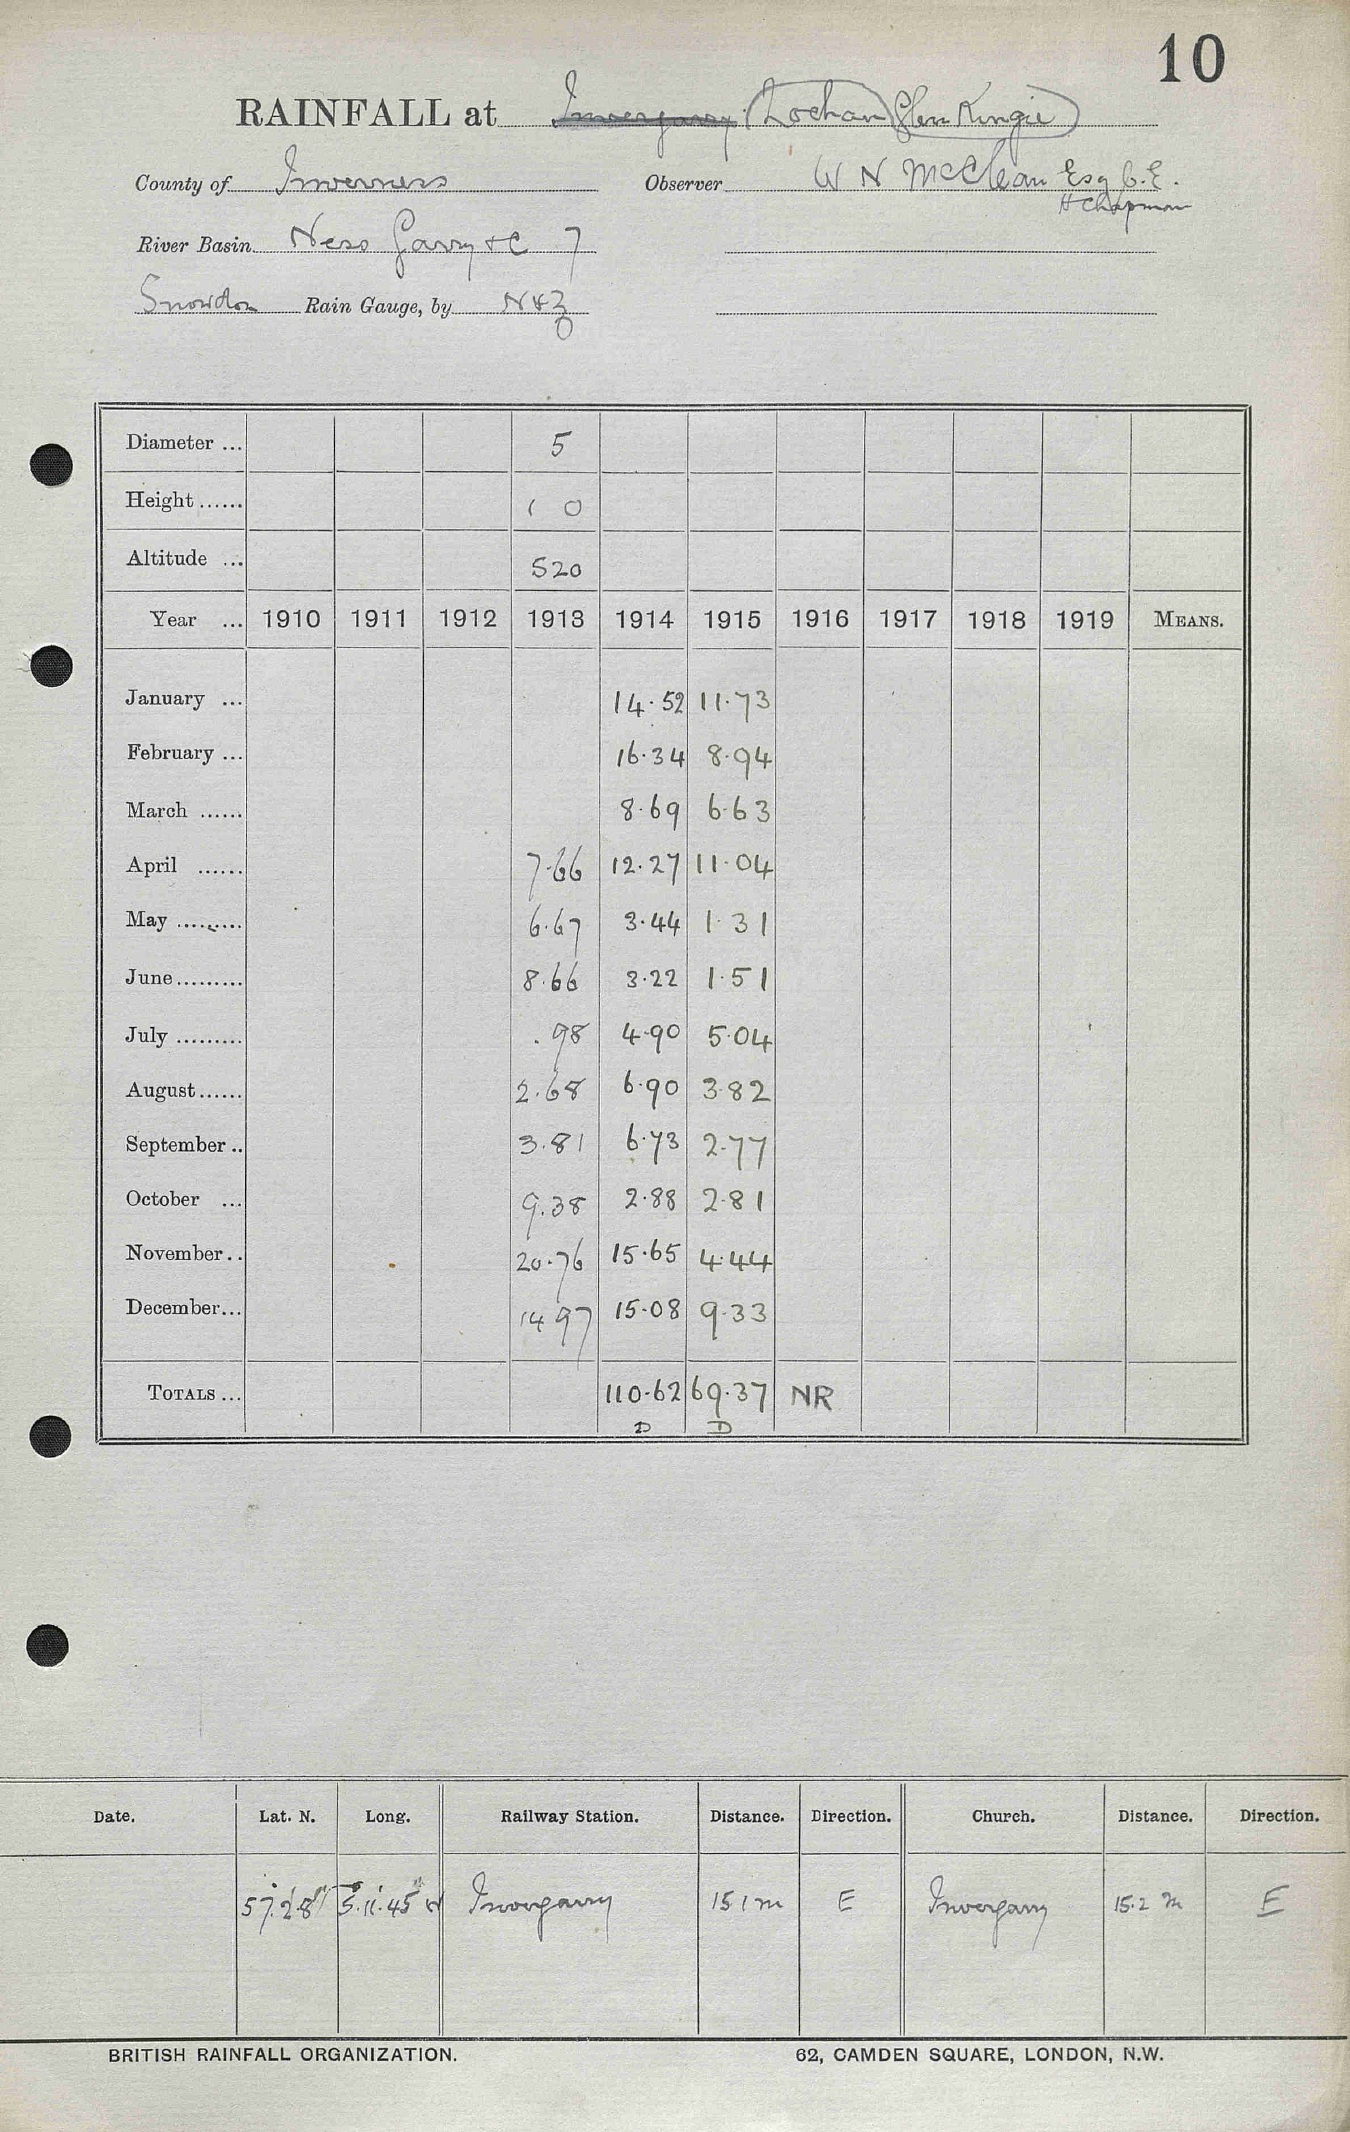 10
RAINFALL at Invergarry (Lochan) (Glen Kingie)
County of Inverness Observer W N McClean Esq C.E.
H Chapman
River Basin Ness Garry &c 7
Snowdon Rain Gauge, by N&Z
Diameter ... 5
Height ...... 1 0
Altitude ... 520
Year ... 1910 1911 1912 1913 1914 1915 1916 1917 1918 1919 MEANS.
January ... 14.52 11.73
February ... 16.34 8.94
March ...... 8.69 6.63
April ...... 7.66 12.27 11.04
May ......... 6.67 3.44 1.31
June ......... 8.66 3.22 1.51
July ......... .98 4.90 5.04
August ...... 2.68 6.90 3.82
September .. 3.81 6.73 2.77
October ... 9.38 2.88 2.81
November .. 20.76 15.65 4.44
December ... 14 97 15.08 9.33
TOTALS ... 110.62 69.37 NR
D D
Date. Lat. N. Long. Railway Station. Distance. Direction. Church. Distance. Direction.
57.2.8" 5.11.45 W Invergarry 15.1 m E Invergarry 15.2 m E
BRITISH RAINFALL ORGANIZATION. 62, CAMDEN SQUARE, LONDON, N.W.